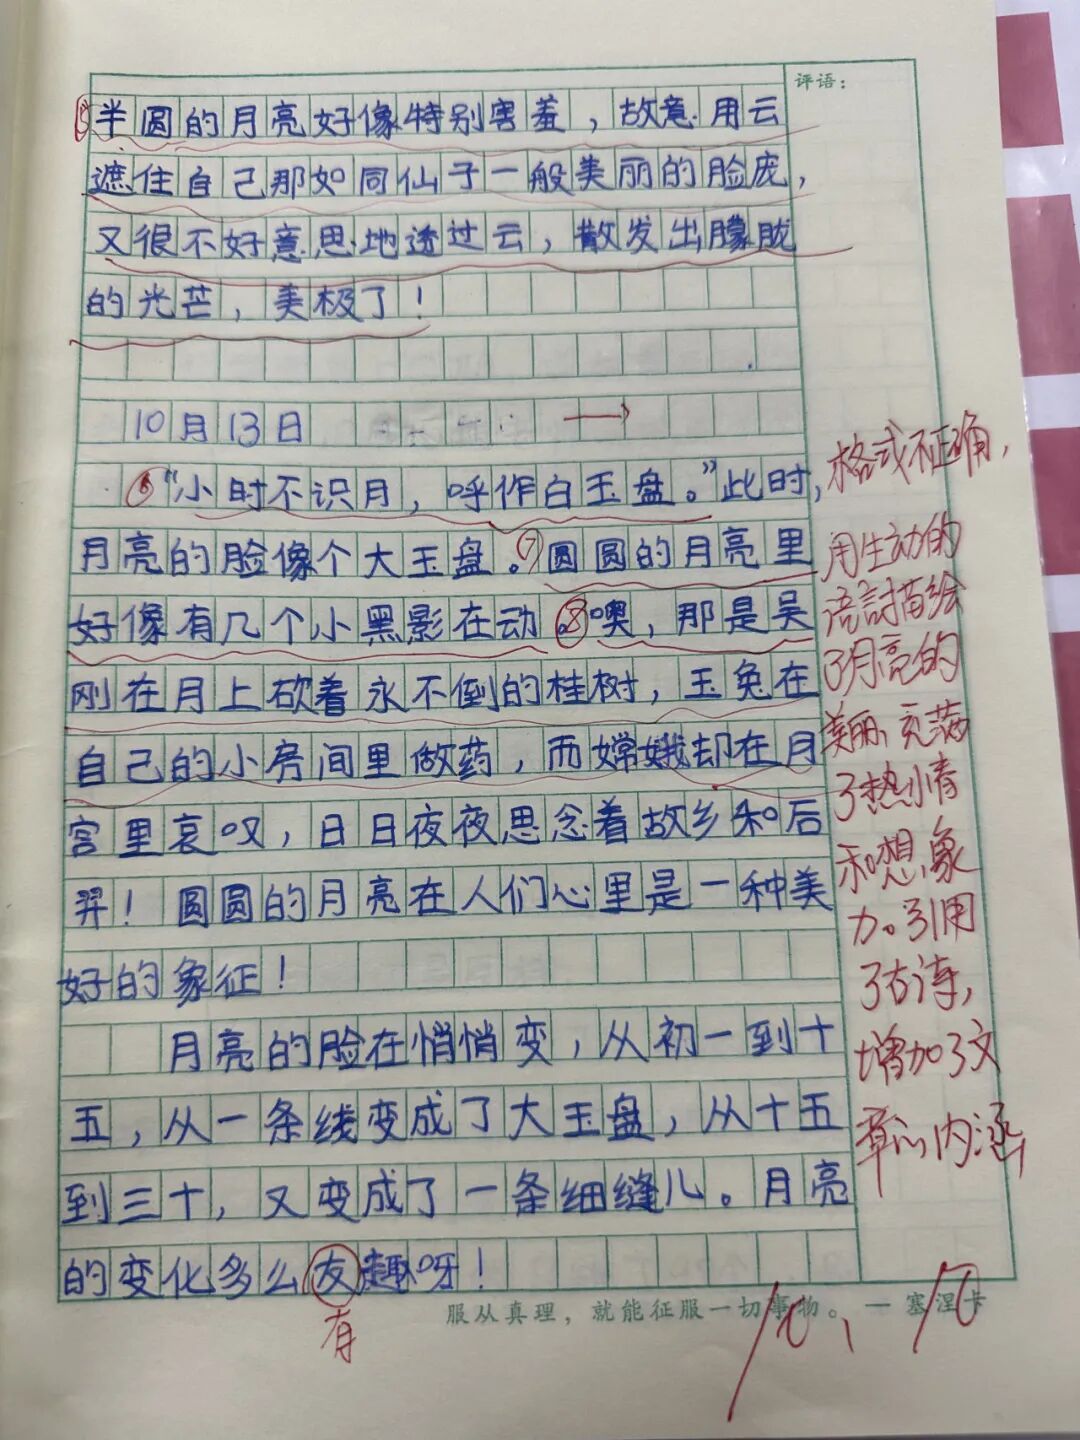 评语：
⑤半圆的月亮好像特别害羞，故意用云
遮住自己那如同仙子一般美丽的脸庞，
又很不好意思地透过云，散发出朦胧
的光芒，美极了！
10月13日
⑥“小时不识月，呼作白玉盘。”此时，
月亮的脸像个大玉盘。⑦圆圆的月亮里
好像有几个小黑影在动。⑧噢，那是吴
刚在月上砍着永不倒的桂树，玉兔在
自己的小房间里做药，而嫦娥却在月
宫里哀叹，日日夜夜思念着故乡和后
羿！圆圆的月亮在人们心里是一种美
好的象征！
月亮的脸在悄悄变，从初一到十
五，从一条线变成了大玉盘，从十五
到三十，又变成了一条细缝儿。月亮
的变化多么友趣呀！
有
格式不正确，
用生动的
语言描绘
了月亮的
美丽，充满
了热情
和想象
力。引用
了古诗，
增加了文
章的内涵
服从真理，就能征服一切事物。 — 塞涅卡